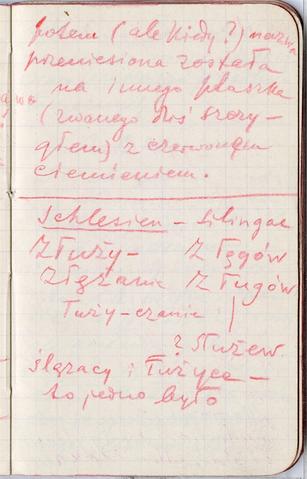 potem (ale kiedy?) nazwa
przeniesiona została
na innego ptaszka
(zwanego dziś szczy-
głem) z czerwonym
ciemieniem.
Schlesien – Silingae
Złuży- Z Łęgów
Zlęzanie Z Ługów
Łuży-czanie
z Służew
ślązacy i Łużyce –
to jedno było